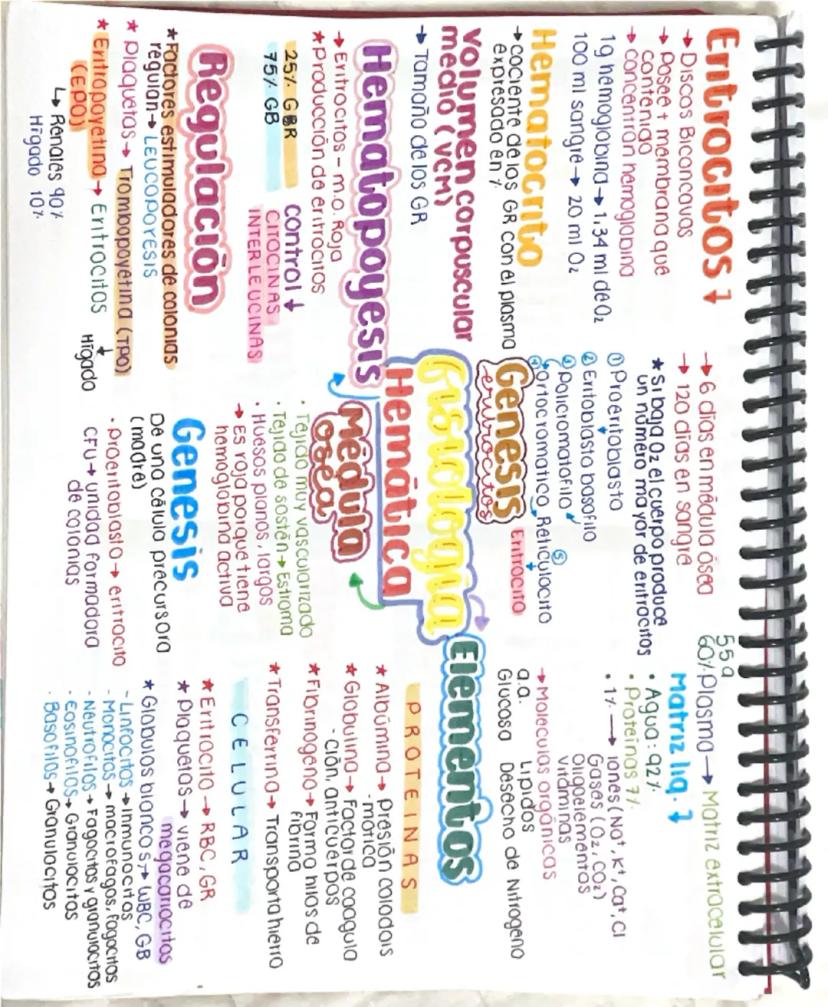 Entrocitos ↓
→ Discos Biconcavos
→ Posee + membrana que
contenido
→ concentran hemoglobina
1g hemoglobina → 1.34 ml de O₂
100 ml sangre → 20 ml O₂
Hematocrito
→ cociente de los GR con el plasma
expresado en %
Volumen corpuscular
medio (VCM)
→ Tamaño de los GR
Hematopoyesis
→ Eritrocitos - m.o. Roja
★ Producción de eritrocitos
25% GR
75% GB
control ↓
CITOCINAS
INTERLEUCINAS
Regulación
★ Factores estimuladores de colonias
regulan → LEUCOPORESIS
★ Plaquetas → Trombopoyetina (TPO)
↓
Hígado
★ Eritropoyetina → Eritrocitos
(EPO)
↳ Renales 90%
Hígado 10%
→ 6 días en médula ósea
→ 120 días en sangre
★ Si baja O₂ el cuerpo produce
un número mayor de entrocitos
① Proeritoblasto
② Eritoblasto basofilo
③ Policromatofilo
④ Ortocromatica
⑤ Reticulocito
Eritrocito
Genesis
eritrocitos
Fisiologia
Hemática
Médula
osea
• Tejido muy vascularizado
• Tejido de sostén → Estroma
• Huesos planos, largos
→ Es roja porque tiene
hemoglobina activa
Genesis
De una célula precursora
(madre)
• Proeritoblasto → eritrocito
CFU → unidad formadora
de colonias
55 a
60% Plasma → Matriz extracelular
Matriz liq. ↓
• Agua: 92%
• Proteínas 7%
• 1% → Iones (Na⁺, K⁺, Ca⁺, Cl
Gases (O₂, CO₂)
Oligoelementos
vitaminas
→ Moleculas orgánicas
a.a. Lipidos
Glucosa Desecho de Nitrogeno
Elementos
PROTEINAS
★ Albúmina → Presión coloidois
-mótica
★ Globulina → Factor de coagula
-ción, anticuerpos
★ Fibrinogeno → Forma hilos de
fibrina
★ Transferrina → Transporta hierro
CELULAR
★ Eritrocito → RBC, GR
★ Plaquetas → viene de
megacariocitos
★ Glóbulos blancos → WBC, GB
- Linfocitos → Inmunocitos
- Monocitos → macrofagos, Fagocitos
- Neutrofilos → Fagocitos y granulocitos
- Eosinofilos → Granulocitos
- Basofilos → Granulocitos